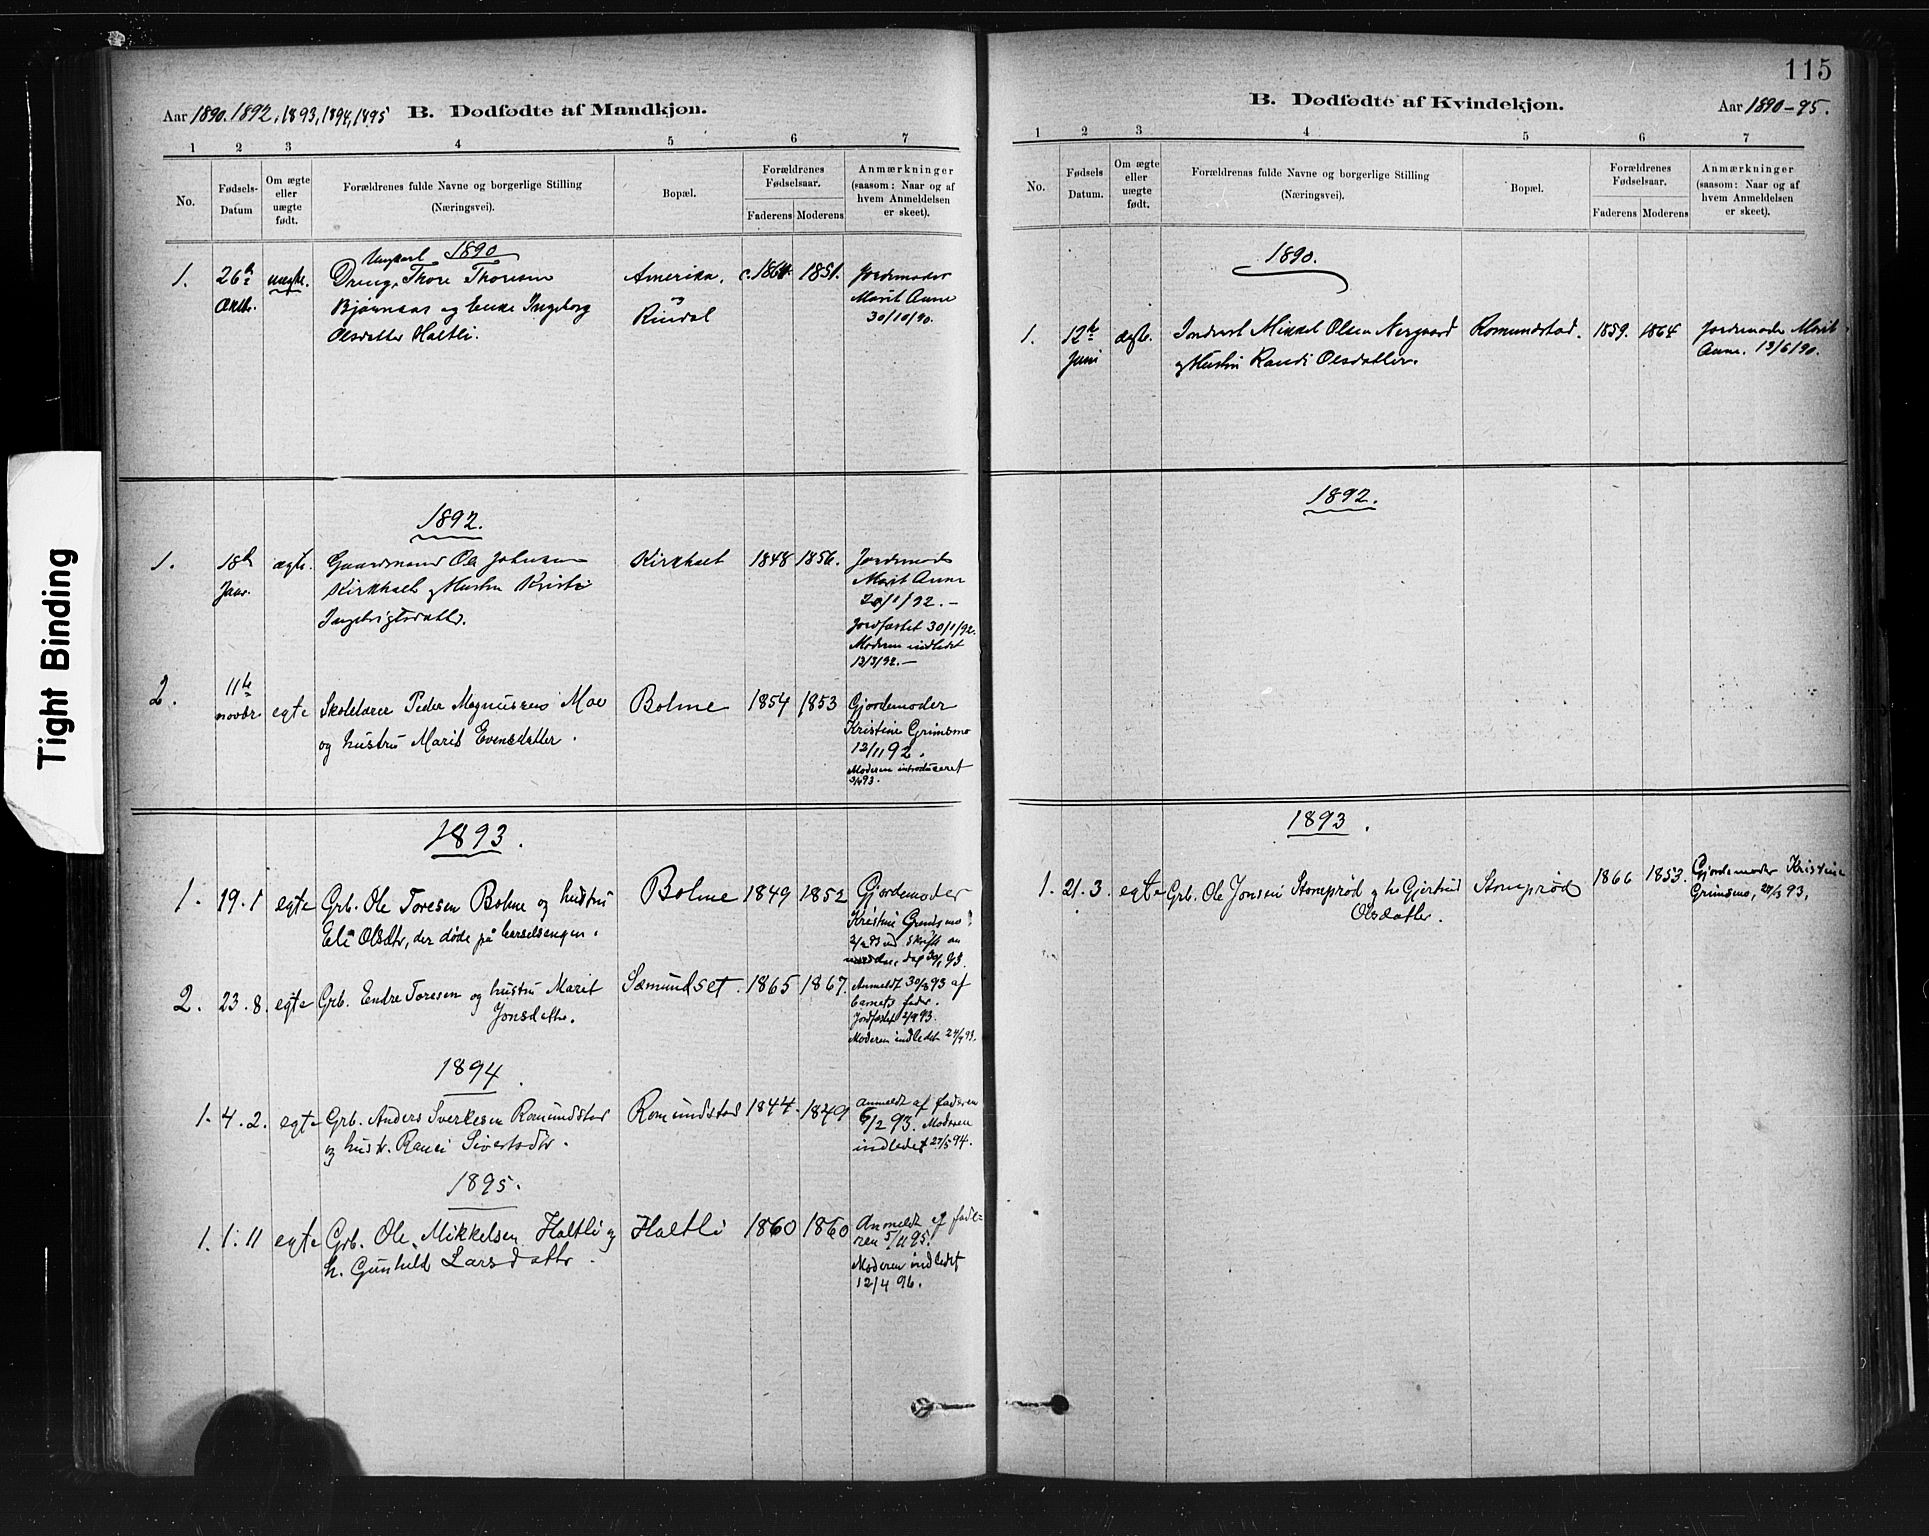 115
Aar 1890. 1892, 1893, 1894, 1895 B. Dødfødte af Mandkjøn.
1 2 3 4 5 6 7
No.
Fødsels-
Datum
Om ægte
eller
uægte
født.
Forældrenes fulde Navne og borgerlige Stilling
(Næringsvei).
Bopæl.
Forældrenes
Fødselsaar.
Faderens Moderens
Anmærkninger
(saasom: Naar og af
hvem Anmeldelsen
er skeet).
Ungkarl 1890
1. 26de uægte. Dreng, Thore Thoresen Amerika, c. 1860. 1851. Jordemoder
Octb. Bjørnaas og Enke Ingeborg Rindal Marit Anne
Olsdatter Haltli. 30/10/90.
1892.
1. 18de ægte. Gaardmand Ole Johnsen Kirkholt 1848 1856. Jordemoder
Janr. Kirkholt og Hustru Kristi Marit Anne
Ingebrigtsdatter. 20/1/92. –
Jordfæstet 30/1/92.
Moderen indledet
13/3/92. –
2. 11te
novbr. egte Skolelærer Peder Magnussen Moe Bolme 1854 1853 Gjordemoder
og hustru Marit Evensdatter. Kristine Grimsmo
12/11 92.
Moderen introduceret
1893.
1. 19.1 egte Grb. Ole Toresen Bolme og hustru Bolme 1849 1852 Gjordemoder
Eli Olsdtr, der døde på barselsengen. Kristine Grimsmo
2. 23.8. egte Grb. Endre Toresen og hustru Marit Sæmundset. 1865 1867. Anmeldt 30/8 93 af
Jonsdatter. barnets fader.
Jordfæstet 2/9 93.
Moderen indledet 24/9 93.
1894.
1. 4.2. egte Grb. Anders Sverkesen Romundstad Romundstad 1844. 1849 Anmeldt af faderen
og hustr. Ranei Sivertsdtr. 6/2 93. Moderen
indledet 27/5 94.
1895.
1. 1.11 egte Grb. Ole Mikkelsen Haltli og Haltli 1860 1860 Anmeldt af fade-
h. Gunhild Larsdatter. ren 5/11 95.
Moderen indledet
12/4 96.
B. Dødfødte af Kvindekjøn. Aar 1890–95.
1 2 3 4 5 6 7
No.
Fødsels
Datum.
Om ægte
eller
uægte
født.
Forældrenes fulde Navne og borgerlig Stilling
(Næringsvei).
Bopæl.
Forældrenes
Fødselsaar.
Faderens Moderens
Anmærkninger
(saasom: Naar og af
hvem Anmeldelsen
er skeet).
1890.
1. 12te ægte. Inderst Mikkel Olsen Nergaard Romundstad. 1859. 1864 Jordemoder Marit
Juni og Hustru Randi Olsdatter. Anne. 13/6/90.
1892.
1893.
1. 21.3. egte Grb. Ole Jonsen Stomprød og h. Gjertrud Stomprød 1866 1853. Gjordemoder Kristine
Olsdatter. Grimsmo,
Tight Binding